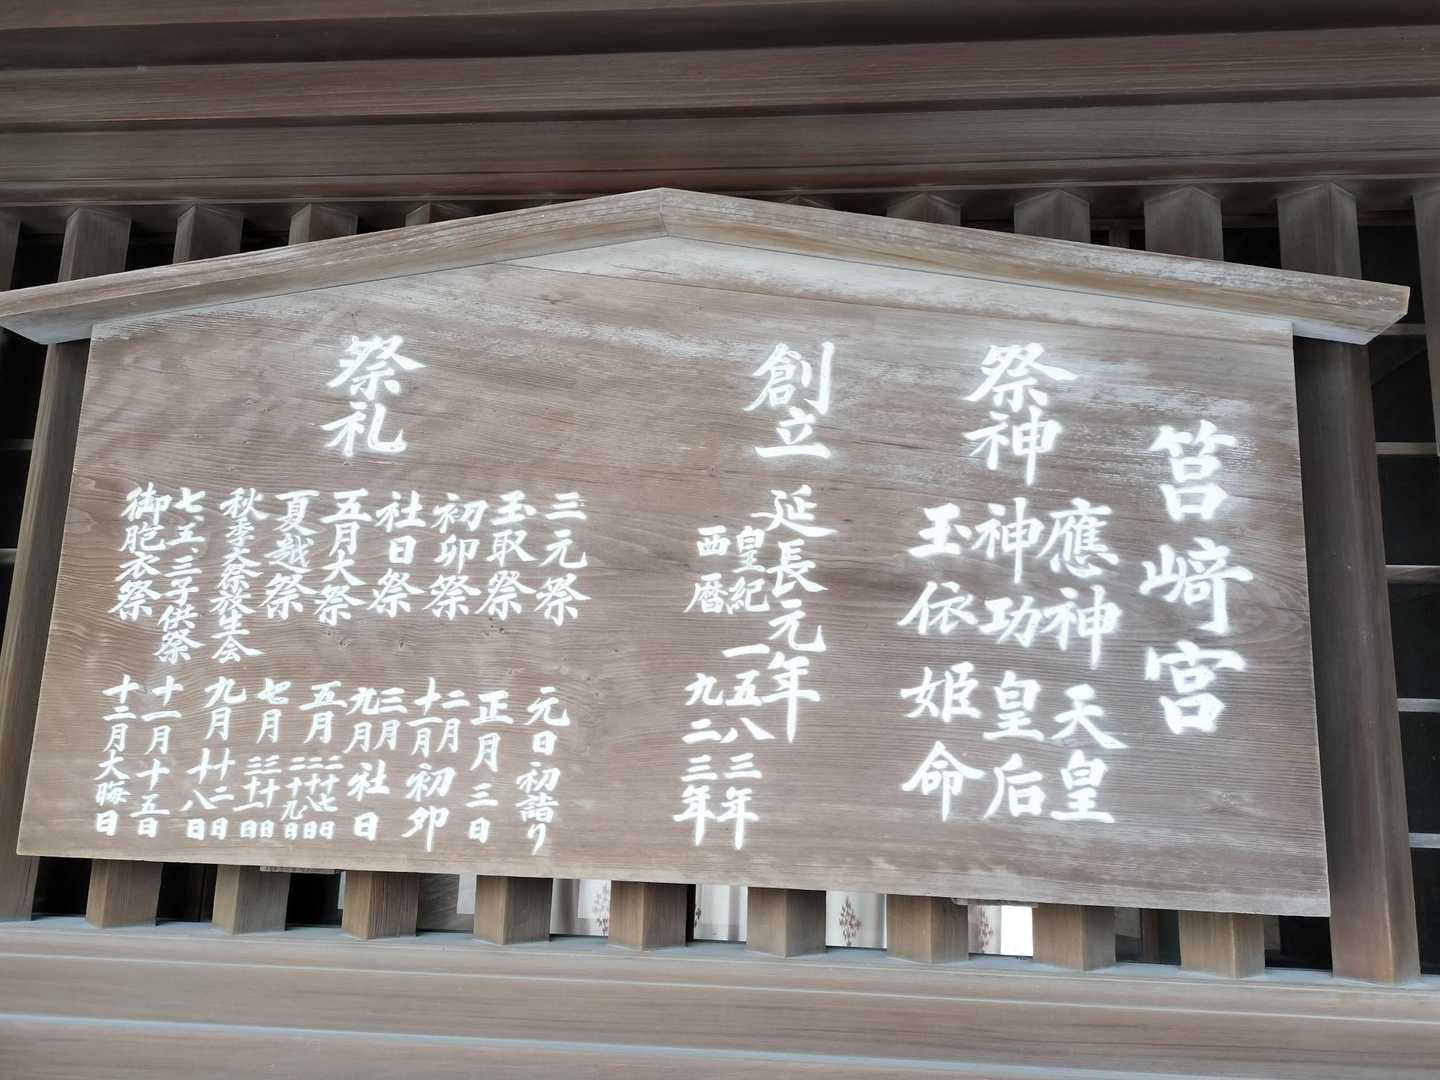 筥﨑宮
祭神
應神天皇
神功皇后
玉依姫命
創立
延長元年
皇紀 一五八三年
西暦 九二三年
祭礼
三元祭 元日初詣り
玉取祭 正月三日
初卯祭 二月十一月初卯
社日祭 三月九月社日
五月大祭 五月二十七日二十八日二十九日
夏越祭 七月三十日三十一日
秋季大祭放生会 九月十二日十八日
七、五、三子供祭 十一月十五日
御胞衣祭 十二月大晦日